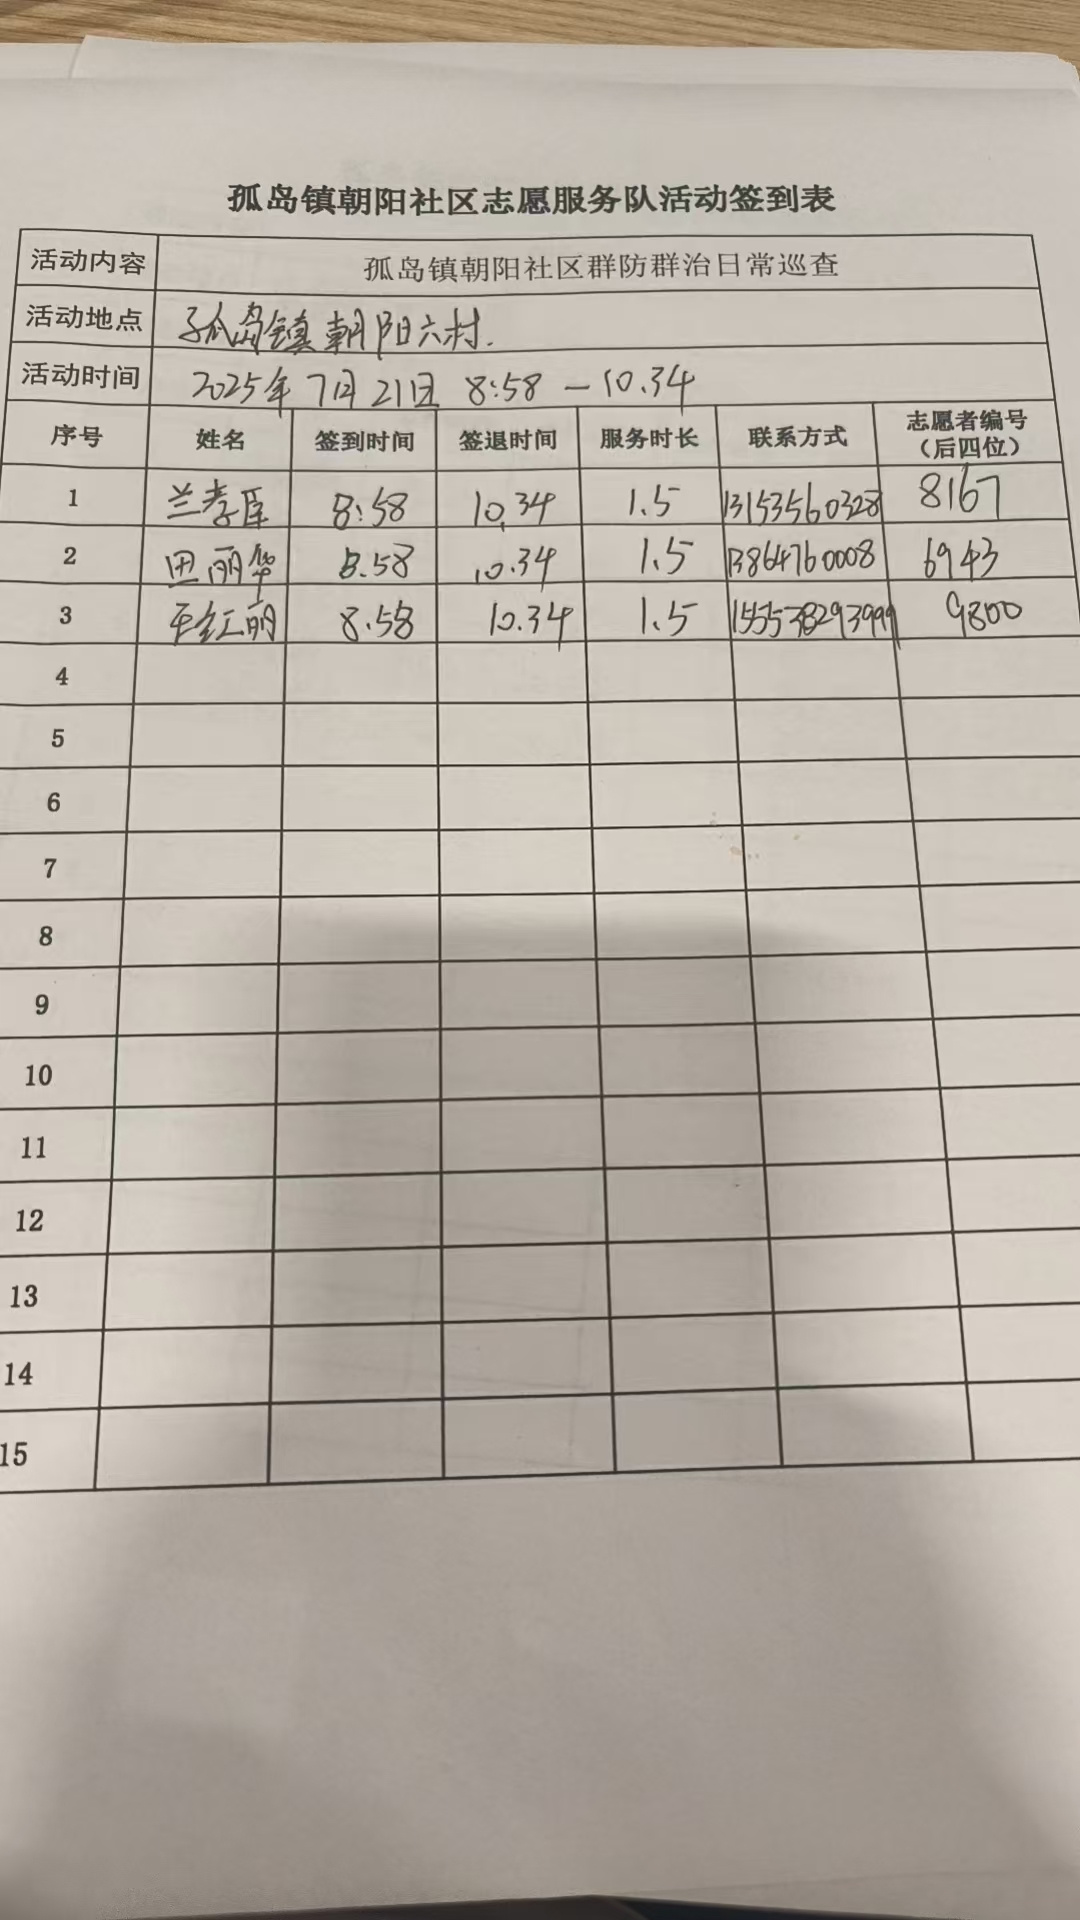 孤岛镇朝阳社区志愿服务队活动签到表
活动内容 孤岛镇朝阳社区群防群治日常巡查
活动地点 孤岛镇朝阳六村.
活动时间 2025年7月21日 8:58 — 10.34
序号 姓名 签到时间 签退时间 服务时长 联系方式 志愿者编号（后四位）
1 兰孝臣 8:58 10.34 1.5 13153560328 8167
2 田丽华 8.58 10.34 1.5 13864760008 6943
3 红丽 8.58 10.34 1.5 9800
4
5
6
7
8
9
10
11
12
13
14
15